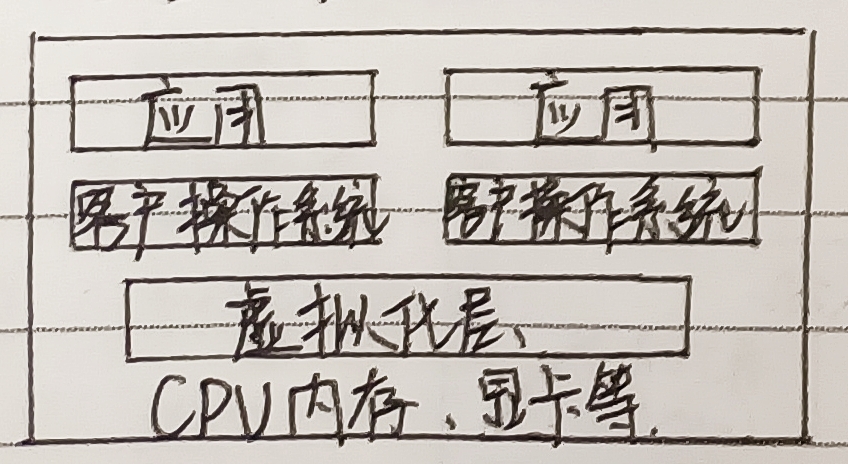 应用 应用
客户操作系统 客户操作系统
虚拟化层、
CPU内存、显卡等.